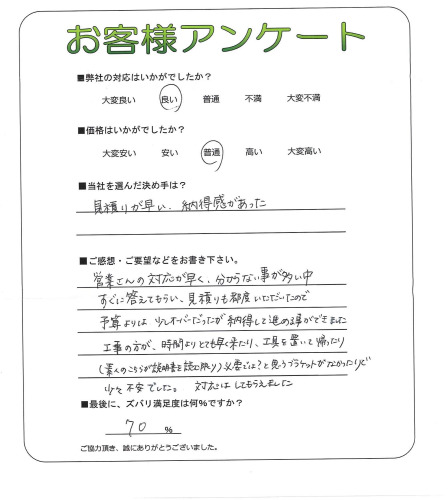 お客様アンケート
■弊社の対応はいかがでしたか？
大変良い 良い 普通 不満 大変不満
■価格はいかがでしたか？
大変安い 安い 普通 高い 大変高い
■当社を選んだ決め手は？
見積りが早い、納得感があった
■ご感想・ご要望などをお書き下さい。
営業さんの対応が早く、分からない事が多い中
すぐに答えてもらい、見積りも都度いただいたので
予算よりは少しオーバーだったが納得して進める事ができました
工事の方が、時間よりとても早く来たり、工具を置いて帰ったり
(素人のこちらが説明書を読む限り)必要では？と思うブラケットがなかったりと
少々不安でした。対応はしてもらえました
■最後に、ズバリ満足度は何％ですか？
70 %
ご協力頂き、誠にありがとうございました。